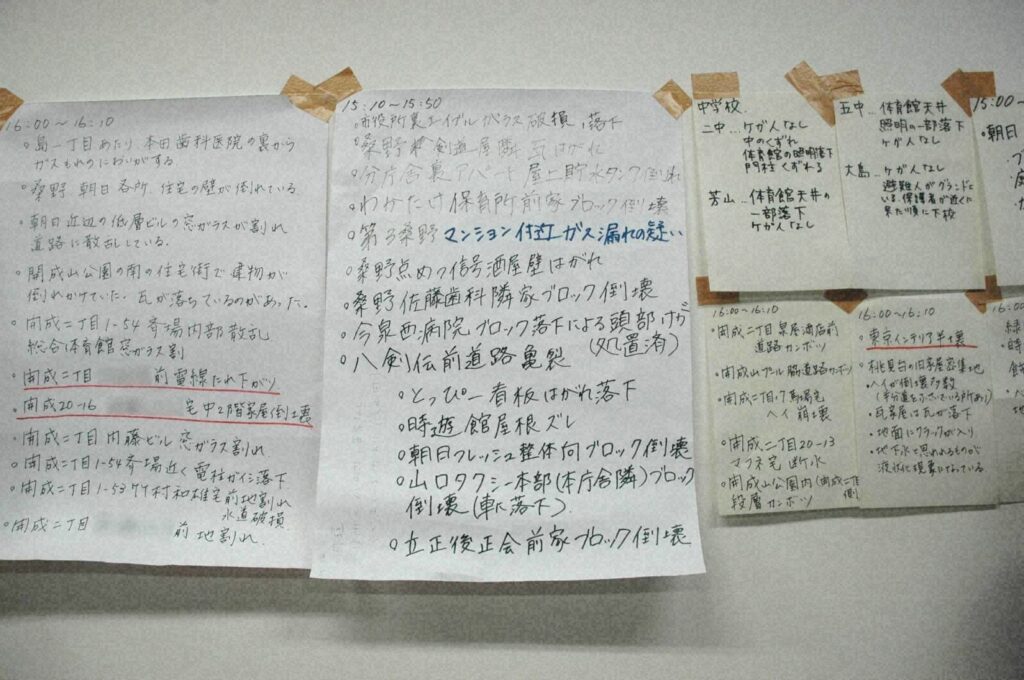 16:00〜16:10
・島一丁目あたり 本田歯科医院の裏から
ガスもれのにおいがする
・桑野 朝日各所、住宅の壁が倒れている
・朝日近辺の低層ビルの窓ガラスが割れ
道路に散乱している。
・開成山公園の南の住宅街で建物が
倒れかけていた。瓦が落ちているのがあった。
・開成二丁目1-54 斉場内部散乱
総合体育館窓ガラス割
・開成二丁目 前電線たれ下がり
・開成20-16 宅中2階家屋倒壊
・開成二丁目内藤ビル窓ガラス割れ
・開成二丁目1-54斉場近く電柱ガイシ落下
・開成二丁目1-53 村和雄宅前地割れ
水道破損
・開成二丁目 前地割れ
15:10〜15:50
・市役所裏エイブルガラス破損、落下
・桑野 剣道具屋隣 瓦はがれ
・分庁舎裏アパート屋上貯水タンク倒れ
・わかたけ保育所前家ブロック倒壊
・第3桑野マンション付近ガス漏れの疑い
・桑野点めつ信号酒屋壁はがれ
・桑野佐藤歯科隣家ブロック倒壊
・今泉西病院ブロック落下による頭部けが
(処置済)
・八剣伝前道路亀裂
・とっぴー看板はがれ落下
・時遊館屋根ズレ
・朝日フレッシュ整体向ブロック倒壊
・山口タクシー本部(本庁舎隣)ブロック
倒壊(車に落下)
・立正佼正会前家ブロック倒壊
中学校
二中…ケガ人なし
中のくずれ
体育館の照明落下
門柱くずれる
芳山…体育館天井の
一部落下
ケガ人なし
五中…体育館天井
照明の一部落下
ケガ人なし
大島…ケガ人なし
避難人がグランドに
いる。保護者が近くに
来た順に下校
15:00〜
・朝日
16:00〜16:10
・開成二丁目 酒店前
道路カンボツ
・開成山プール脇道路カンボツ
・開成二丁目・7 宅
ヘイ崩壊
・開成二丁目20-13
マフネ宅 断水
・開成山公園内(開成二丁目側)
段層カンボツ
16:00〜16:10
・東京インテリア半壊
・桃見台の旧家屋密集地
・ヘイが倒壊多数
・瓦家屋は瓦が落下
・地面にクラックが入り
・地下水と思われるものが
液状化現象になっている
16:00〜